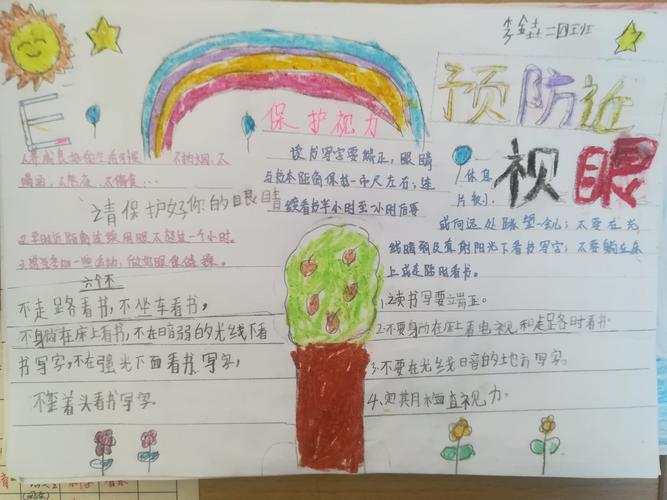 二四班
预防近
视眼
E
保护视力
读书写字要端正,眼睛
与书本距离保持一市尺左右;连
续看书半小时至一小时后要
休息
片刻
或向远处眺望一会儿;不要在光
线暗弱及直射阳光下看书写字;不要躺在床
上或走路时看书。
1.养成良好的生活习惯 不吸烟、不
喝酒、不熬夜、不偏食...
请保护好你的眼睛
不超过一个小时。
六个不
不走路看书,不坐车看书,
不躺在床上看书,不在暗弱的光线下看
书写字,不在强光下面看书写字,
不歪着头看书写字
1.读书写字要立端正。
2.不要躺在床上看电视和走路时看书。
3.不要在光线日音的地方写字。
4.定其月检查视力。